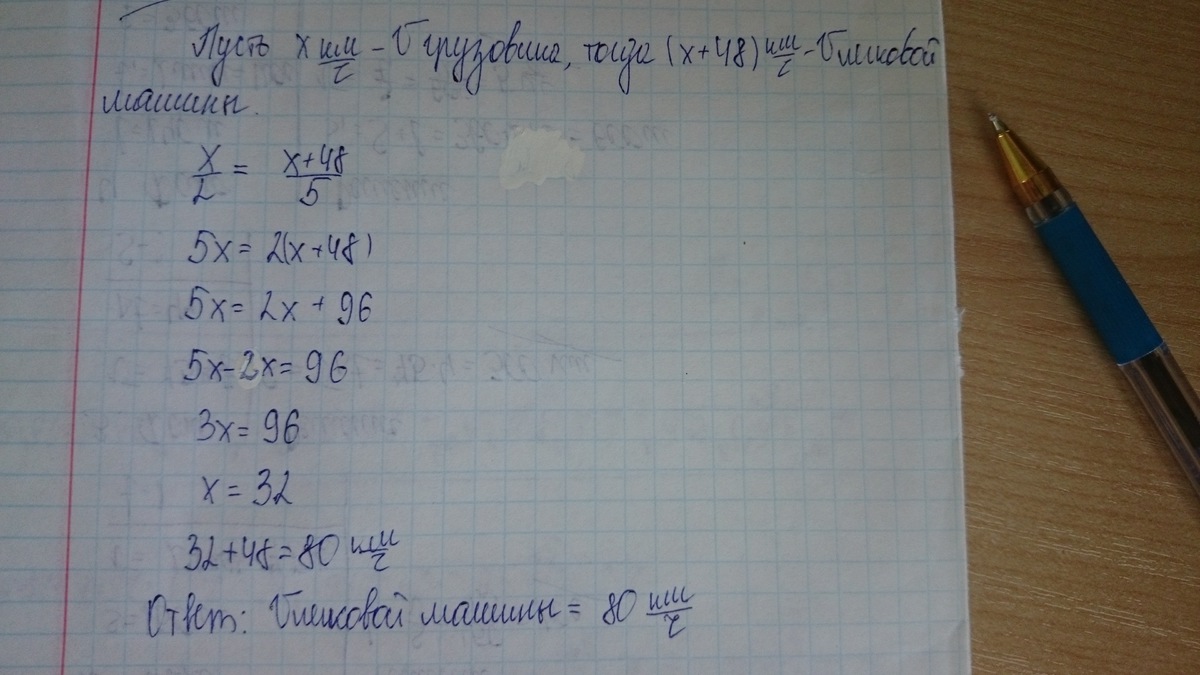 Пусть х км/ч - V грузовика, тогда (х+48) км/ч - V легковой
машины.
х/2 = х+48/5
5х = 2(х+48)
5х = 2х + 96
5х-2х = 96
3х = 96
х = 32
32+48=80 км/ч
Ответ: V легковой машины = 80 км/ч